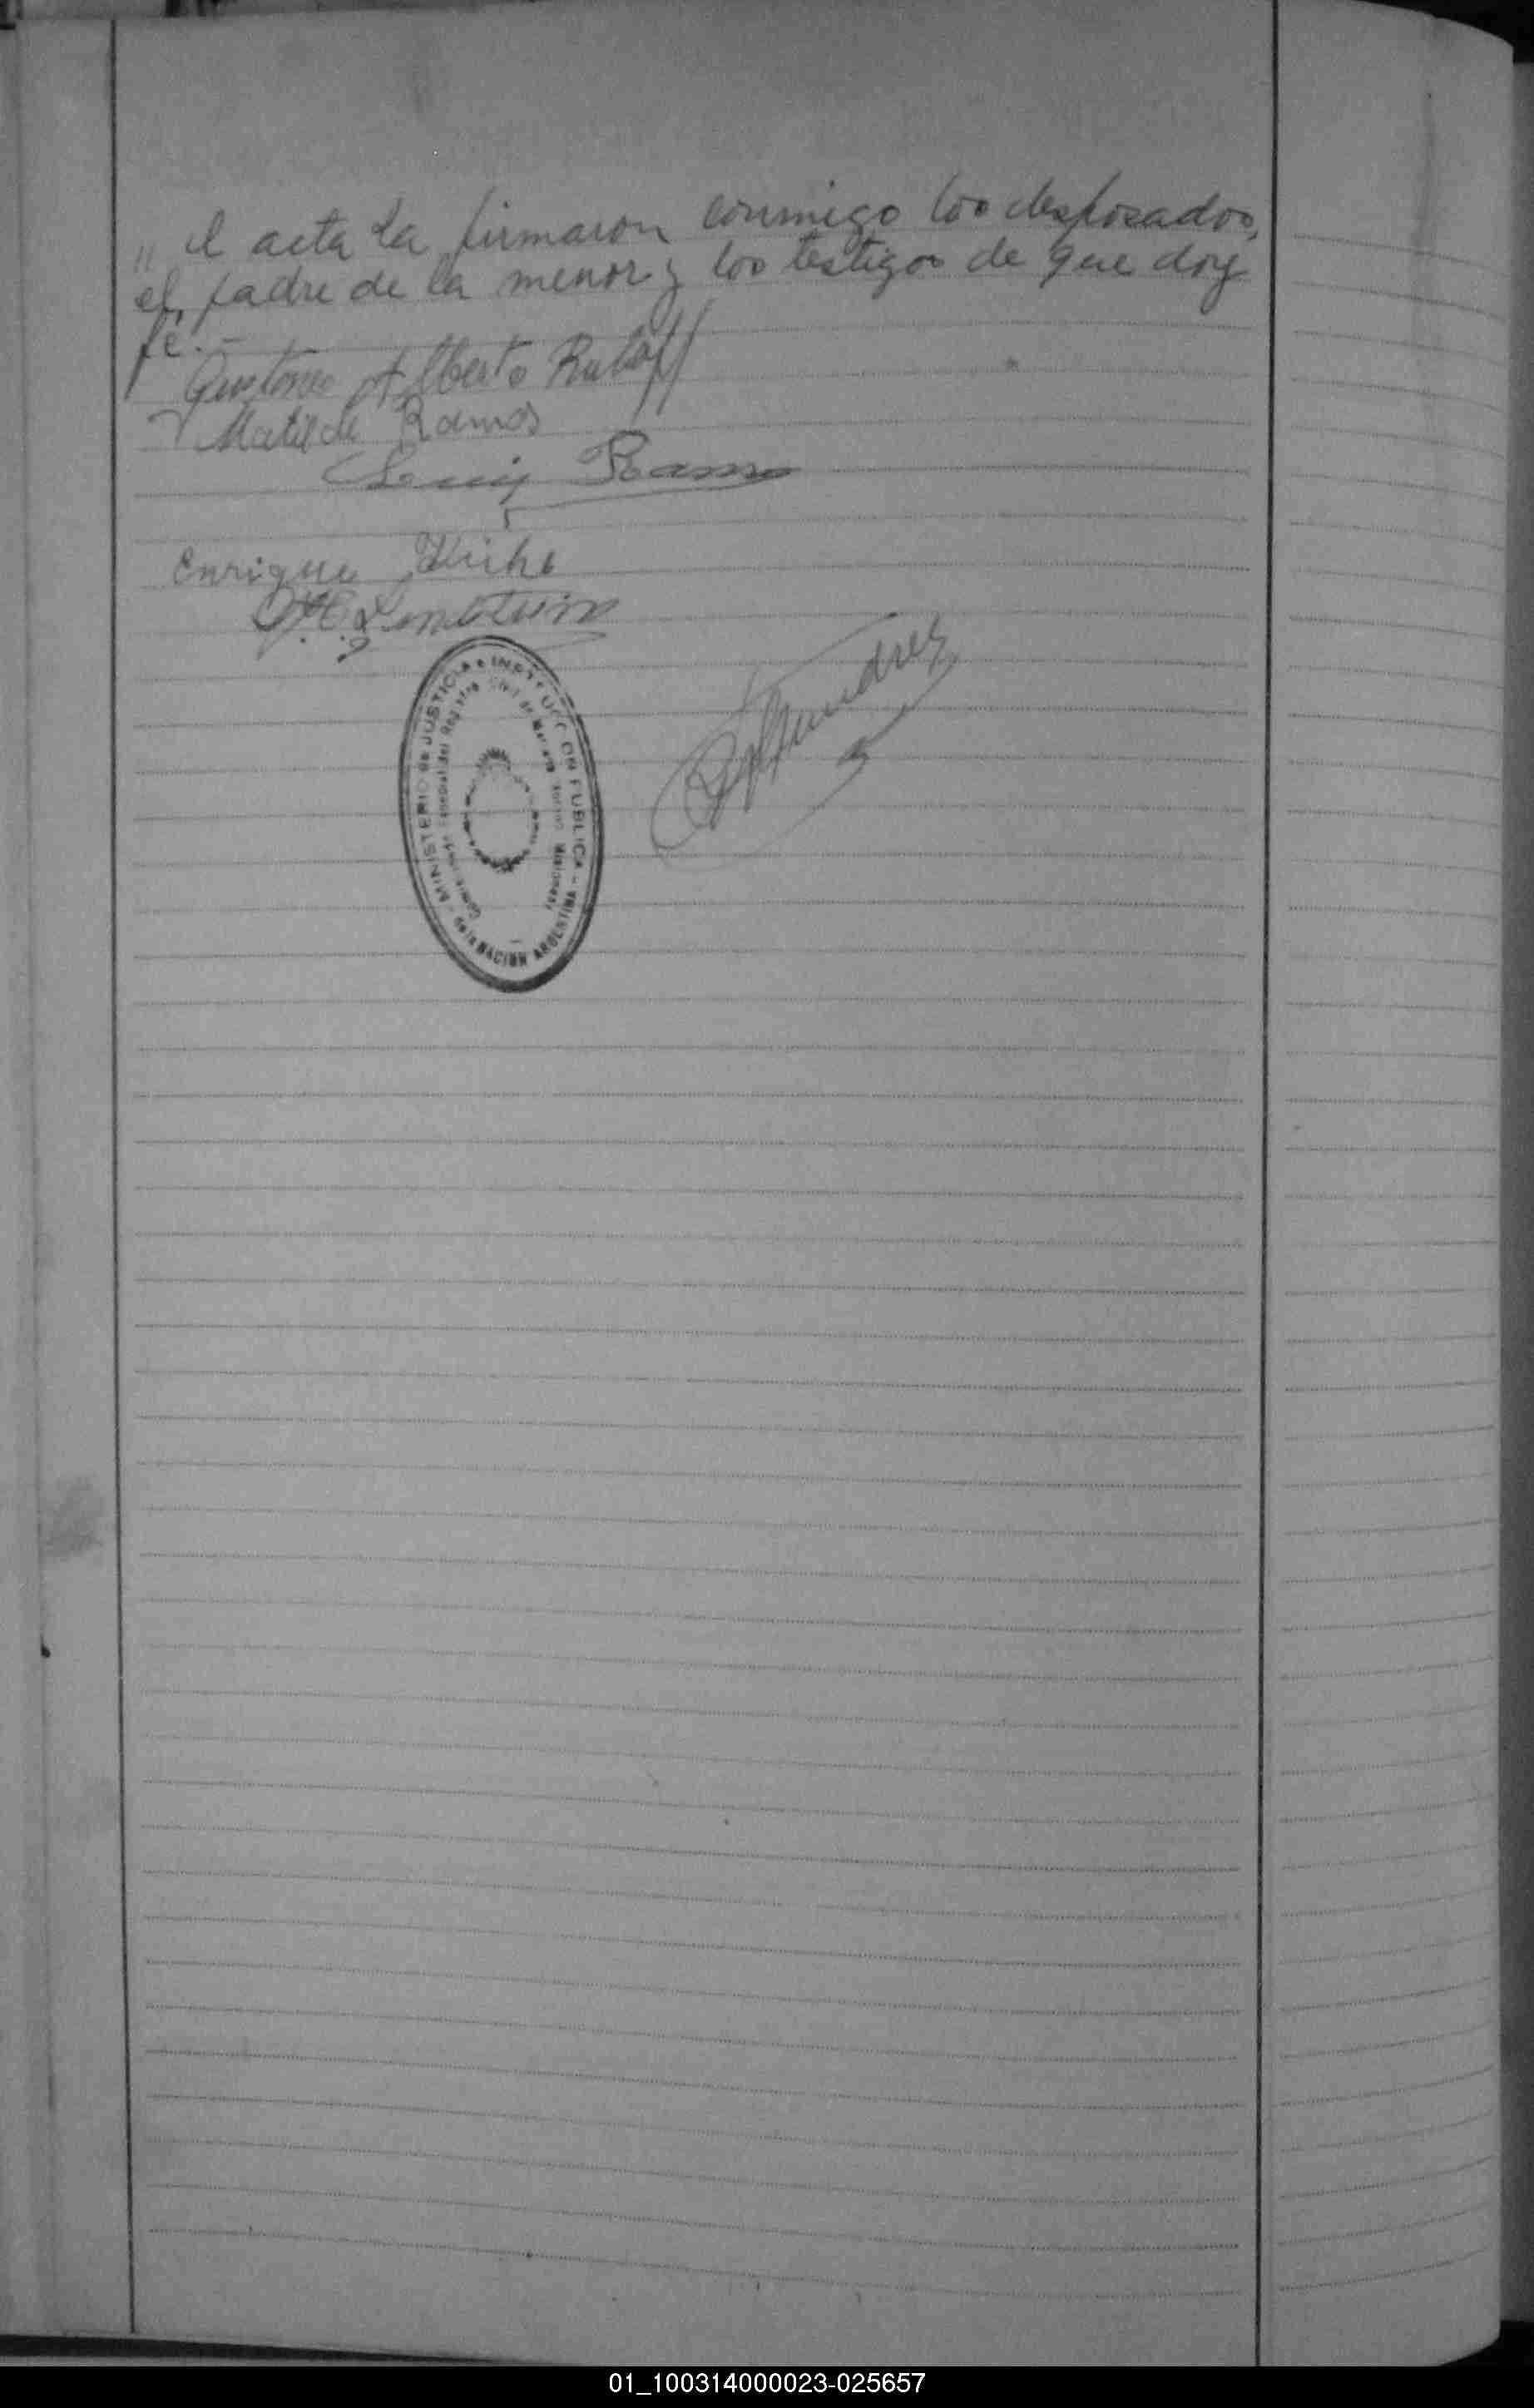 " el acta la firmaron conmigo los desposados,
el padre de la menor y los testigos de que doy
fé.-
Alberto
Matilde Ramos
Luis Ramos
Enrique
MINISTERIO de JUSTICIA e INSTRUCCION PUBLICA -
de la NACION ARGENTINA -
01_100314000023-025657